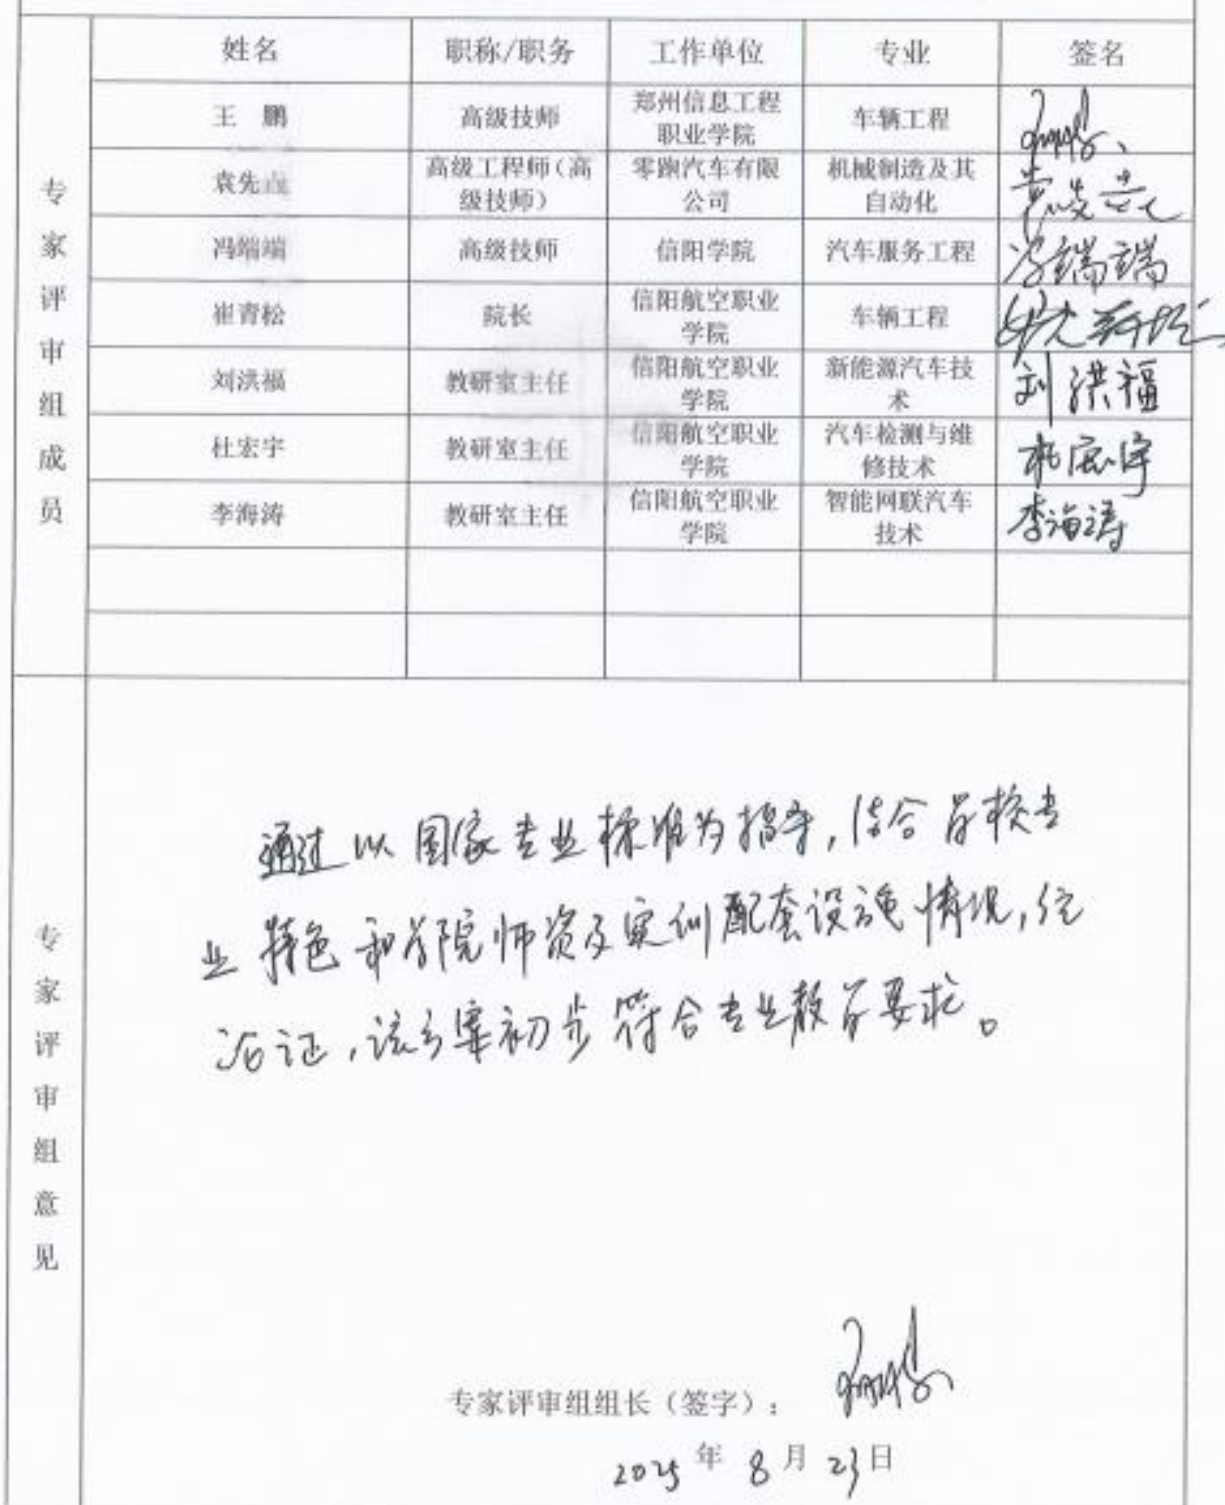 姓名 职称/职务 工作单位 专业 签名
专家评审组成员
王 鹏 高级技师 郑州信息工程职业学院 车辆工程
袁先 高级工程师(高级技师) 零跑汽车有限公司 机械制造及其自动化
冯端端 高级技师 信阳学院 汽车服务工程 冯端端
崔青松 院长 信阳航空职业学院 车辆工程
刘洪福 教研室主任 信阳航空职业学院 新能源汽车技术 刘洪福
杜宏宇 教研室主任 信阳航空职业学院 汽车检测与维修技术 杜宏宇
李海涛 教研室主任 信阳航空职业学院 智能网联汽车技术 李海涛
专家评审组意见
通过以国家专业标准为指导,结合学校专
业特色和学院师资及实训配套设施情况,经
论证,该方案初步符合专业教学要求。
专家评审组组长(签字):
2025 年 8 月 23 日